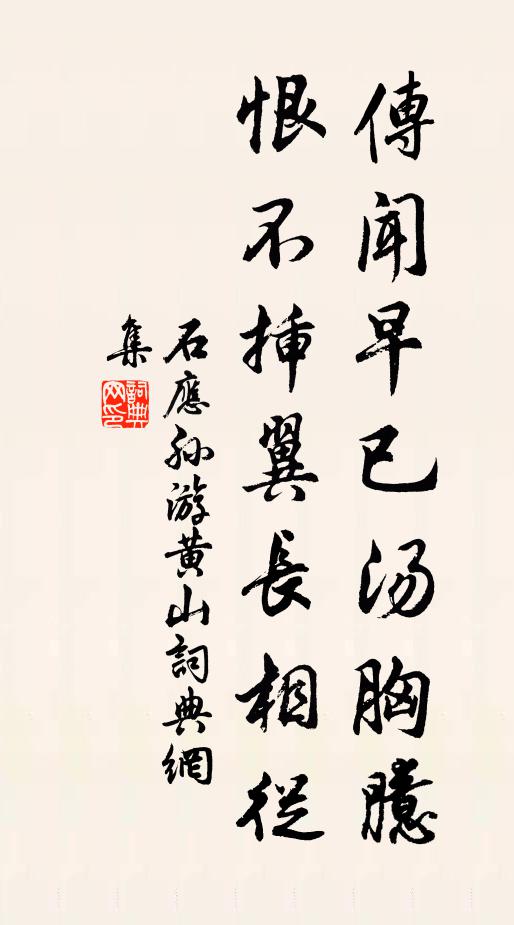 傳聞早已汤胸臆
恨不挿翼長相從
石應孫游黄山詞典網
集
詞典网印